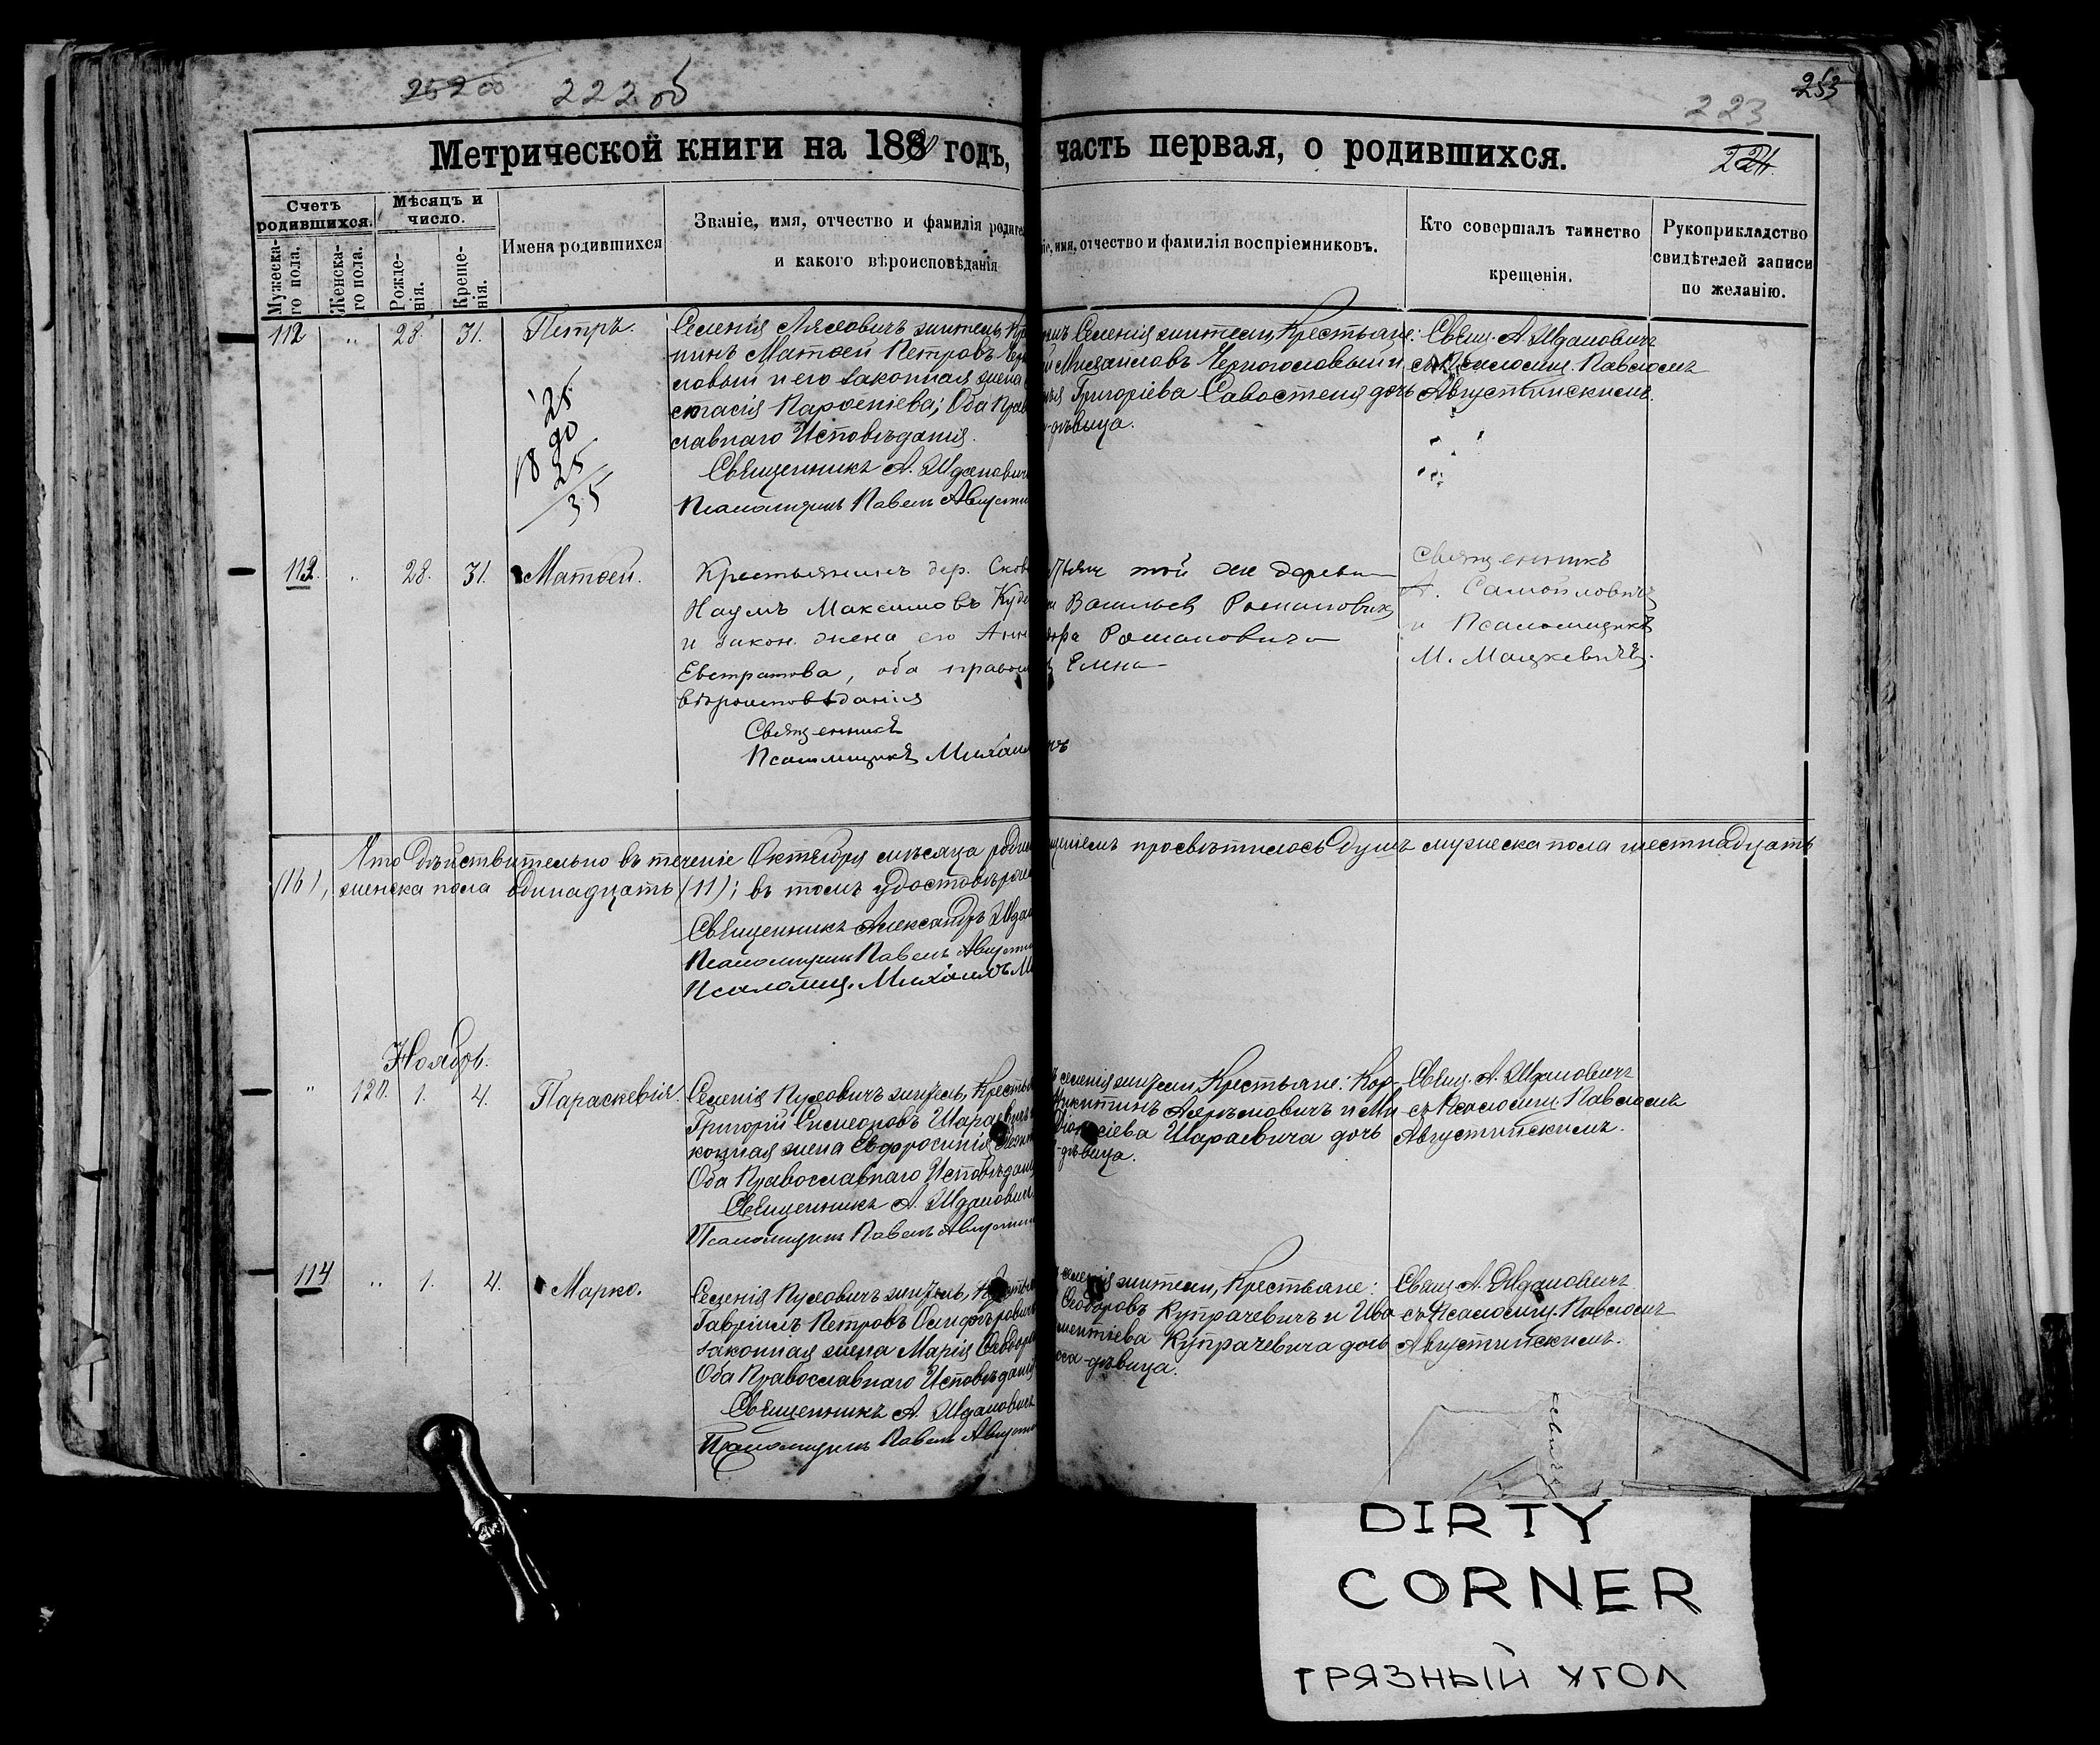 222 об
253
223
Метрической книги на 188 годъ,
часть первая, о родившихся.
Счетъ родившихся.
Мѣсяцъ и число.
Мужеска-го пола.
Женска-го пола.
Рожде-нія.
Креще-нія.
Имена родившихся
Званіе, имя, отчество и фамилія родите
и какого вѣроисповѣданія
іе, имя, отчество и фамилія воспріемниковъ.
Кто совершалъ таинство
крещенія.
Рукоприкладство
свидѣтелей записи
по желанію.
112 " 28. 31. Петръ.
Селенія Ляховичъ житель, Кре
нинъ Матѳей Петровъ Чер
ловый и его законная жена
стасія Парѳеніева; Оба Прав
славнаго Исповѣданія.
Священникъ А. Ждановичъ
Псаломщикъ Павелъ Августи
25
90
18 25
35
Селенія жители, Крестьяне:
Михаиловъ Черноголовый и
Григоріева Савостея дочь
дѣвица.
Свящ. А. Ждановичъ
съ Псаломщ. Павломъ
Августинскимъ.
113. " 28. 31. Матѳей.
Крестьянинъ дер. Сков
Наумъ Максимовъ Куде
и закон. жена его Анн
Евстратова, оба правос
вѣроисповѣданія
Священникъ
Псаломщикъ Михаил
той же деревни
Васильев Романович
Романовича
Елена
Священникъ
А. Самойловичъ
и Псаломщикъ
М. Мацкевичъ.
Что дѣйствительно въ теченіе Октября мѣсяца роди
щеніемъ просвѣтилось душъ мужеска пола шестнадцать
(16), женска пола одинадцать (11); въ томъ удостовѣряе
Священникъ Александръ Ждан
Псаломщикъ Павелъ Августи
Псаломщ. Михаилъ М
Ноябрь.
" 120. 1. 4. Параскевія.
Селенія Пуховичъ житель, Крестья
Григорій Симеоновъ Шараевичъ
конная жена Евфросинія
Оба Православнаго Исповѣданія
Священникъ А. Ждановичъ.
Псаломщикъ Павелъ Августин
селенія жители, Крестьяне: Кор-
Никитинъ Ахрѣмовичъ и Ма
Діонисіева Шараевича дочь
дѣвица.
Свящ. А. Ждановичъ
съ Псаломщ. Павломъ
Августинскимъ.
114 " 1. 4. Марко.
Селенія Пуховичъ житель, Крестья
Гавріилъ Петровъ
законная жена Марія Ѳеодоро
Оба Православнаго Исповѣданія
Священникъ А. Ждановичъ
Псаломщикъ Павелъ Августи
селенія жители, Крестьяне:
Ѳеодоровъ Купрачевичъ и
ментіева Купрачевича дочь
дѣвица.
Свящ. А. Ждановичъ
съ Псаломщ. Павломъ
Августинскимъ.
DIRTY
CORNER
ГРЯЗНЫЙ УГОЛ